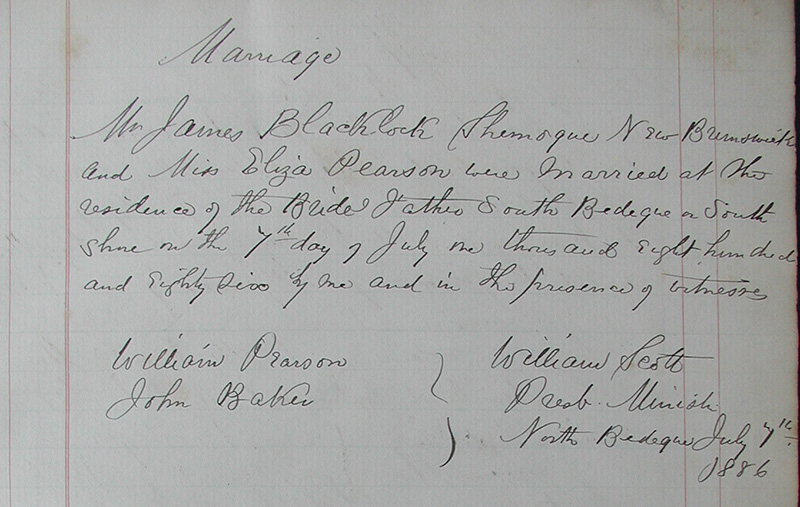 Marriage
Mr James Blacklock Shemogue New Brunswick
and Miss Eliza Pearson were Married at the
residence of the Bride Father South Bedeque on South
Shore on the 7th day of July one thousand Eight hundred
and Eighty Six by me and in the presence of witnesses
William Pearson
John Baker
William Scott
Presb. Minist.
North Bedeque July 7th
1886